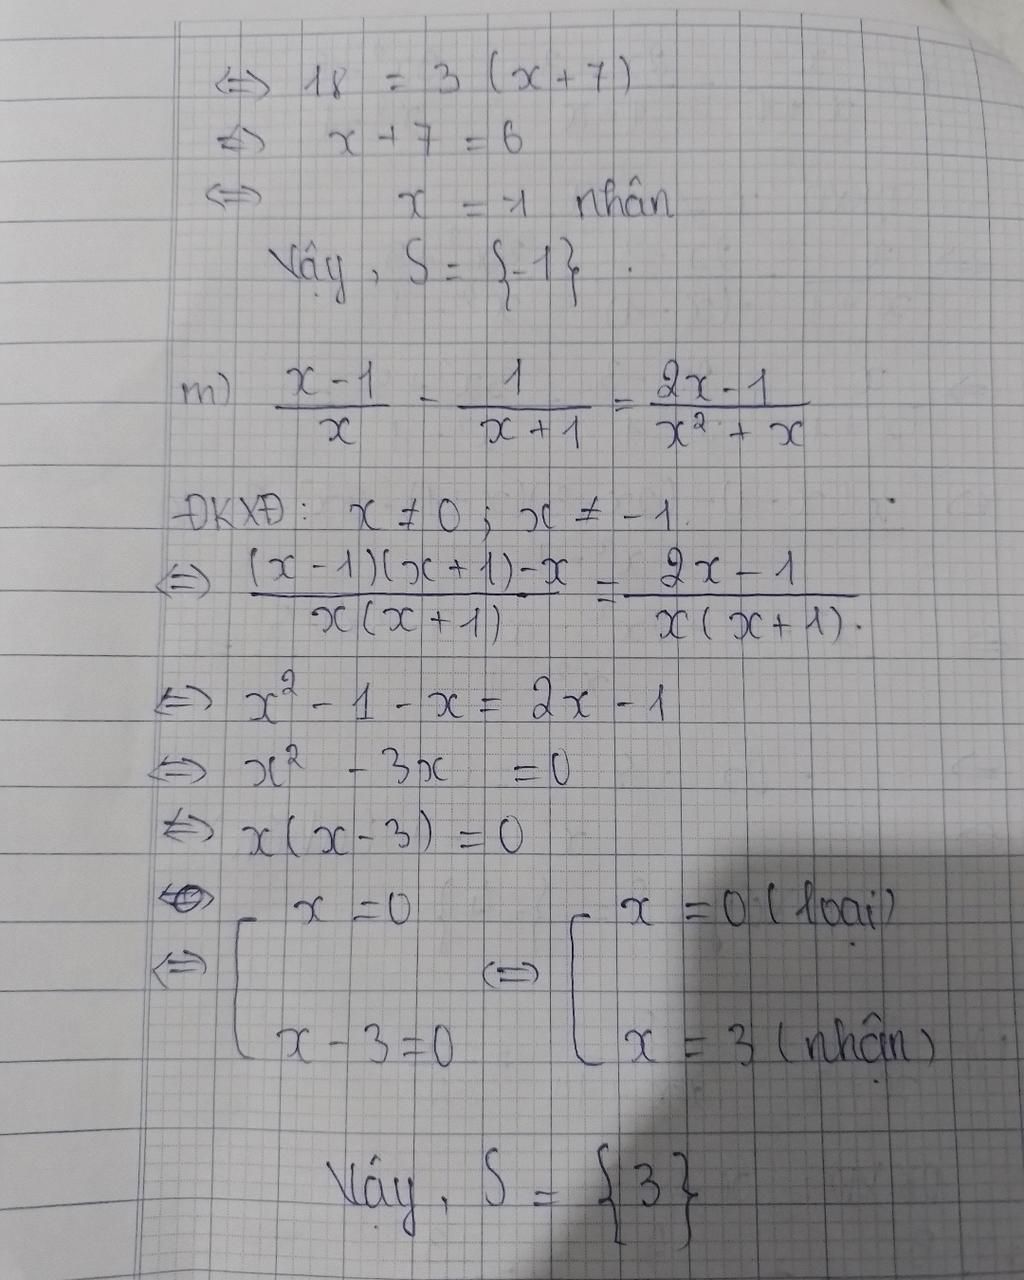 ⇔ 18 = 3 (x + 7)
⇔ x + 7 = 6
⇔ x = -1 nhân
Vậy, S = {-1}.
m) (x - 1)/x - 1/(x + 1) = (2x - 1)/(x² + x)
ĐKXĐ: x ≠ 0 ; x ≠ -1.
⇔ ((x - 1)(x + 1) - x)/(x(x + 1)) = (2x - 1)/(x(x + 1)).
⇔ x² - 1 - x = 2x - 1
⇔ x² - 3x = 0
⇔ x(x - 3) = 0
⇔ [ x = 0 ⇔ [ x = 0 (loại)
x - 3 = 0 x = 3 (nhận)
Vậy, S = {3}